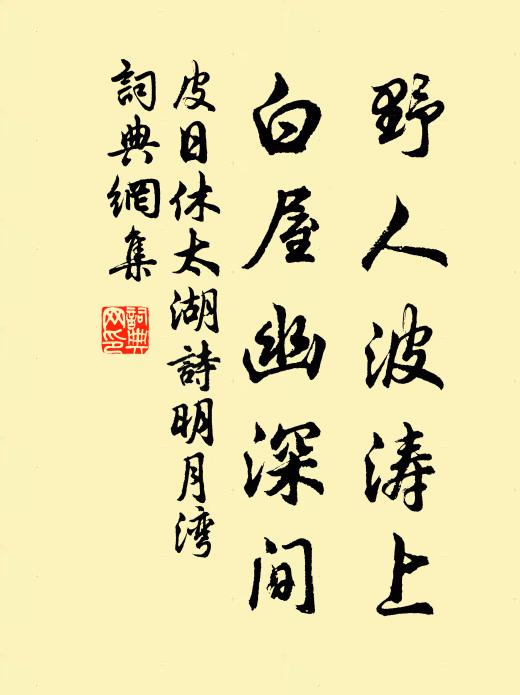 野人波涛上
白屋幽深间
皮日休太湖詩明月湾
詞典網集
詞典
网印